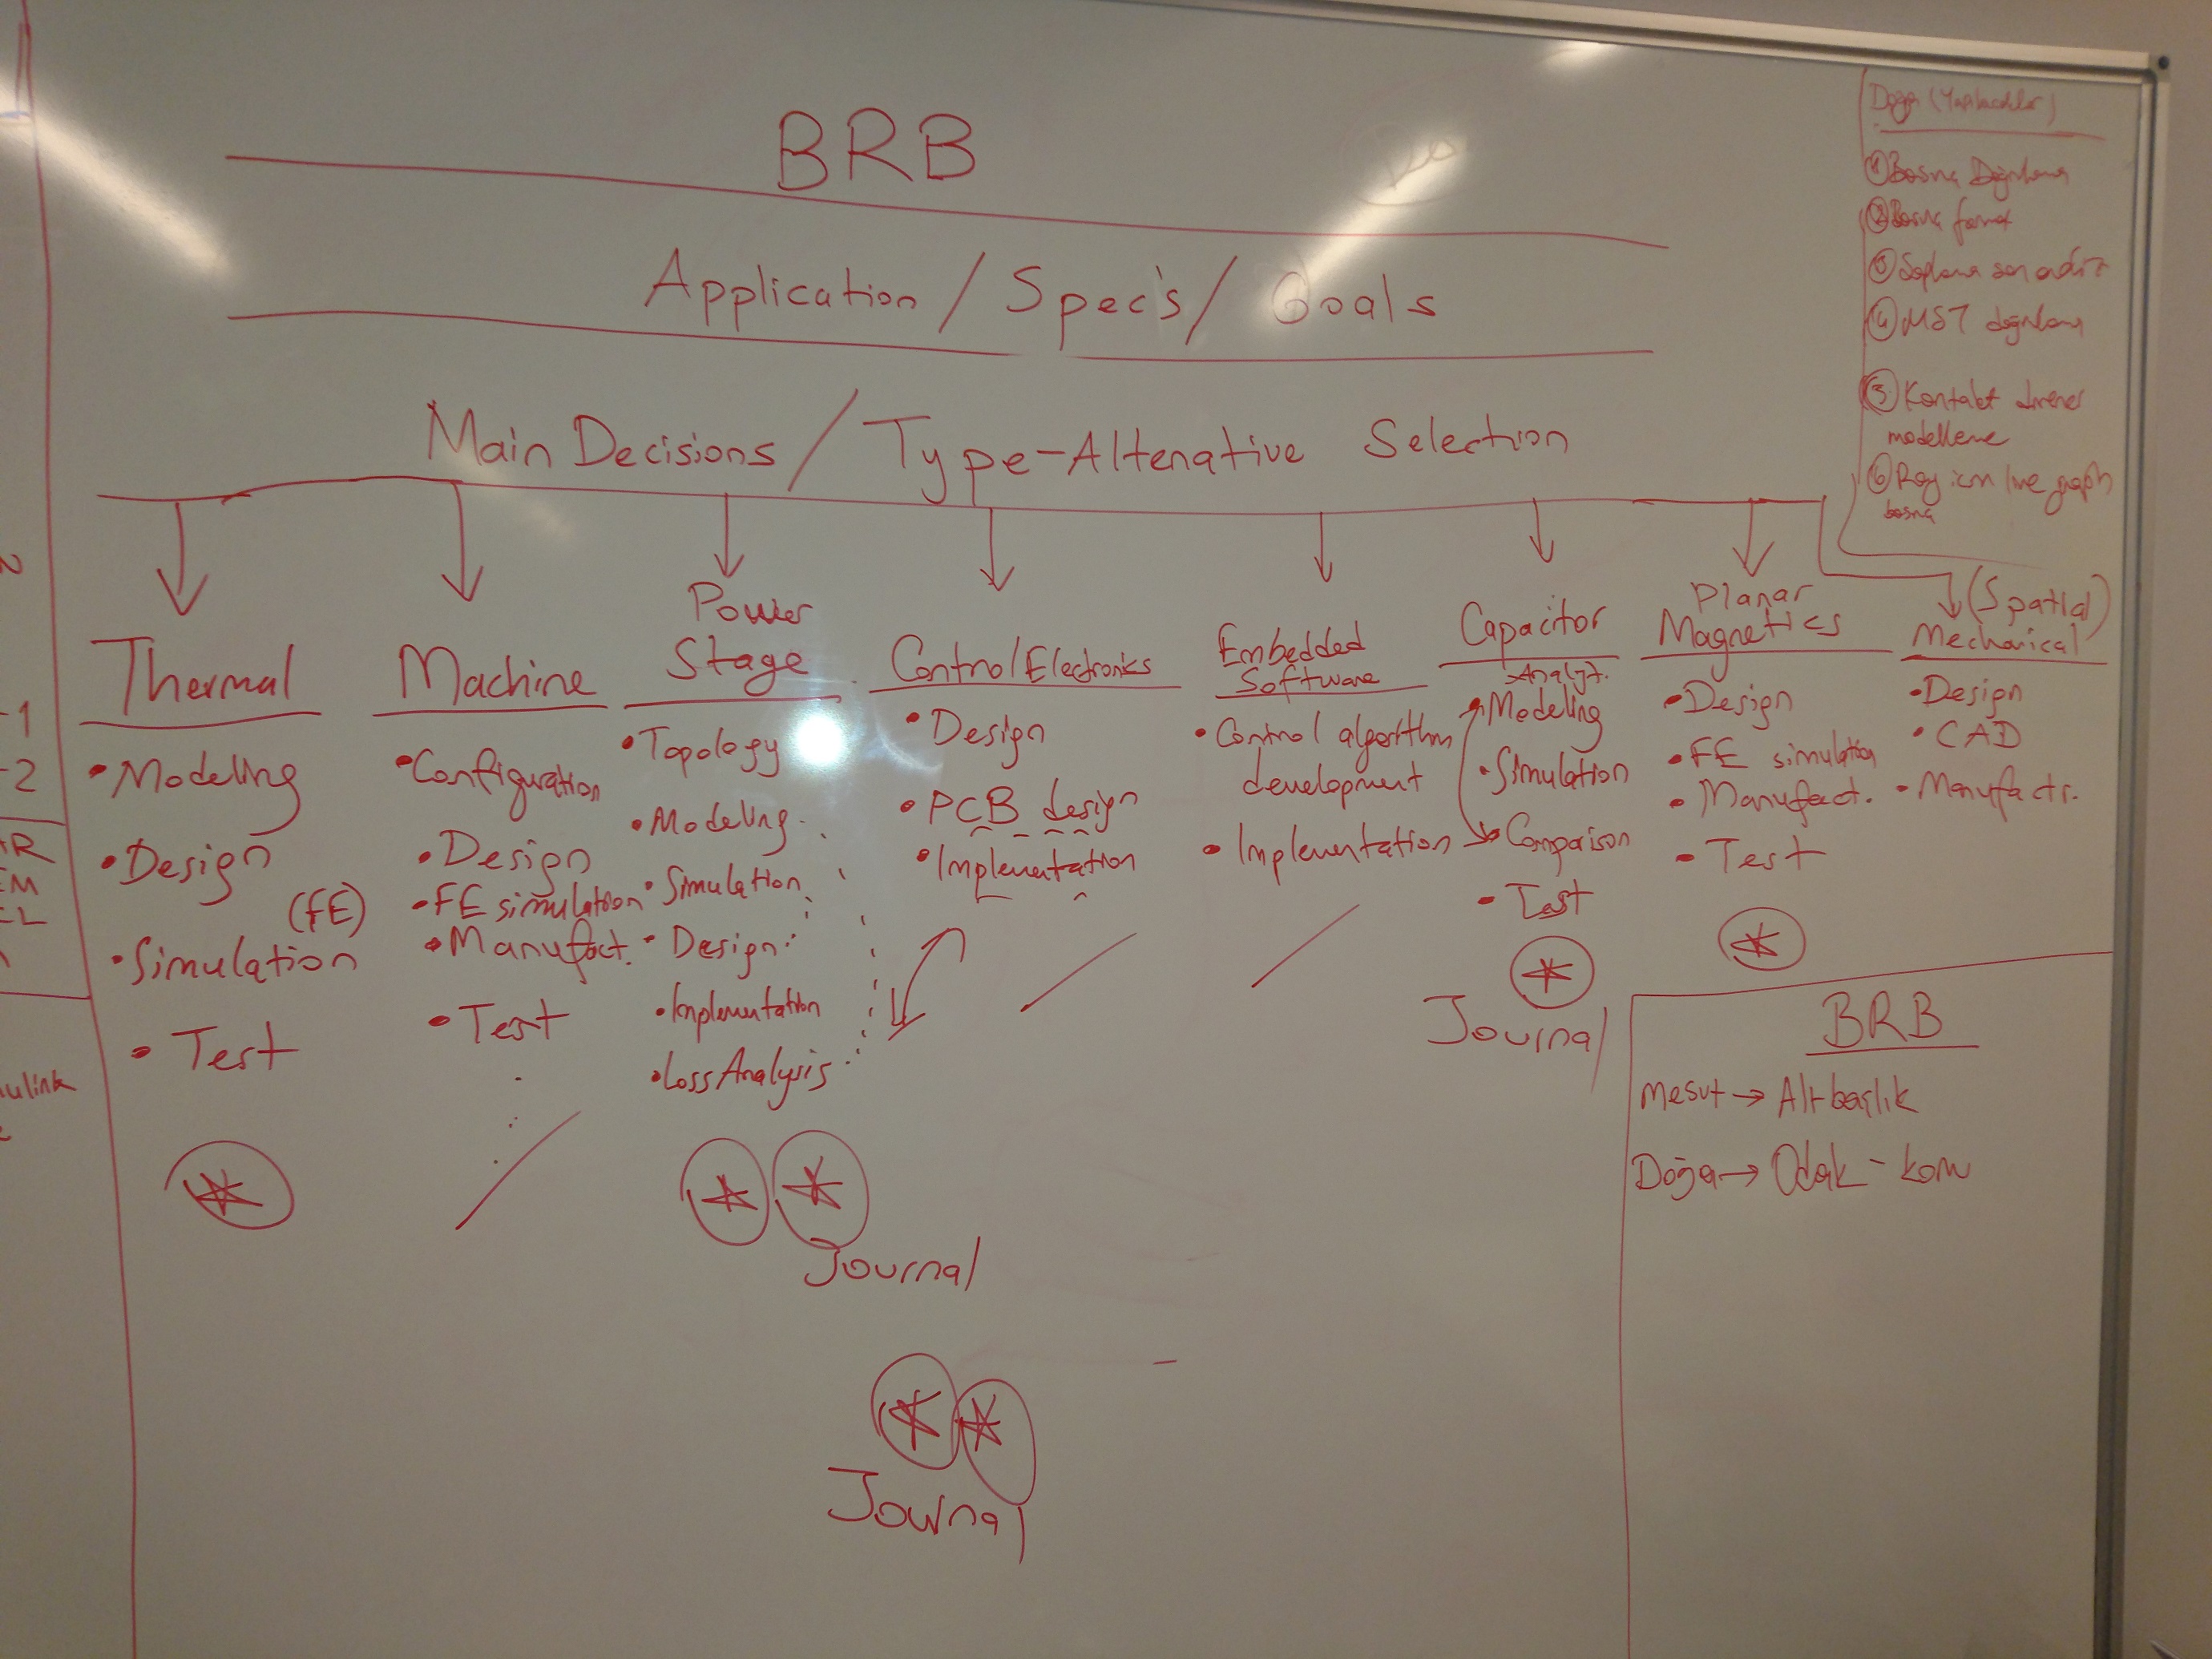 BRB
Application / Spec's / Goals
Main Decisions / Type-Altenative Selection
Thermal
• Modeling
• Design
(FE)
• Simulation
• Test
Machine
• Configuration
• Design
• FE simulation
• Manufact.
• Test
Power
Stage
• Topology
• Modeling
• Simulation
• Design
• Implementation
• Loss Analysis
Journal
Journal
Control Electronics
• Design
• PCB design
• Implementation
Embedded
Software
• Control algorithm
development
• Implementation
Capacitor
Analyt.
• Modeling
• Simulation
• Comparison
• Test
Journal
Planar
Magnetics
• Design
• FE simulation
• Manufact.
• Test
(Spatial)
Mechanical
• Design
• CAD
• Manufact.
Doğa (Yapılacaklar)
① Basınç Doğrulama
② Basınç
④ MST doğrulama
⑤ Kontakt
modelleme
⑥ için line graph
basınç
BRB
Mesut → Altbaşlık
Doğa → Odak-
-1
-2
AR
EM
EL
ulink